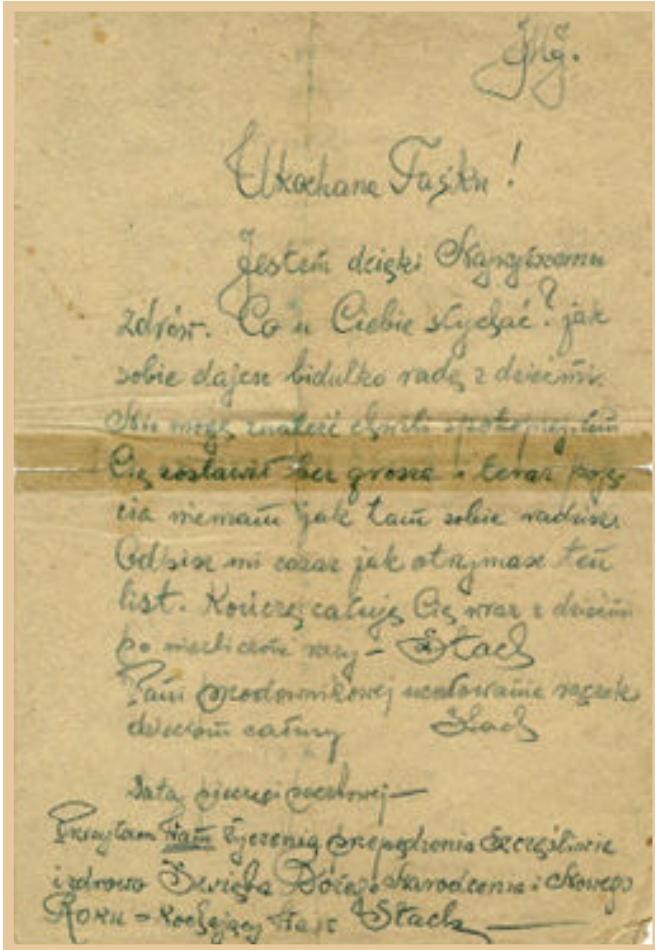 JMJ.
Ukochana Taśku!
Jestem dzięki Najwyższemu
zdrów. Co u Ciebie słychać? jak
sobie dajesz bidulko radę z dziećmi.
Nie mogę znaleźć chwili spokojnej, żem
Cię zostawił bez grosza i teraz poję-
cia niemam jak tam sobie radzisz.
Odpisz mi zaraz jak otrzymasz ten
list. Kończę całuję Cię wraz z dziećmi
po niezliczone razy – Stach
Pani przodownikowej ucałowanie rączek
dzieciom całusy Stach
Data pieczęci pocztowej —
Przesyłam Wam życzenia przepędzenia szczęśliwie
i zdrowo Święta Bożego Narodzenia i Nowego
Roku – kochający Was Stach —